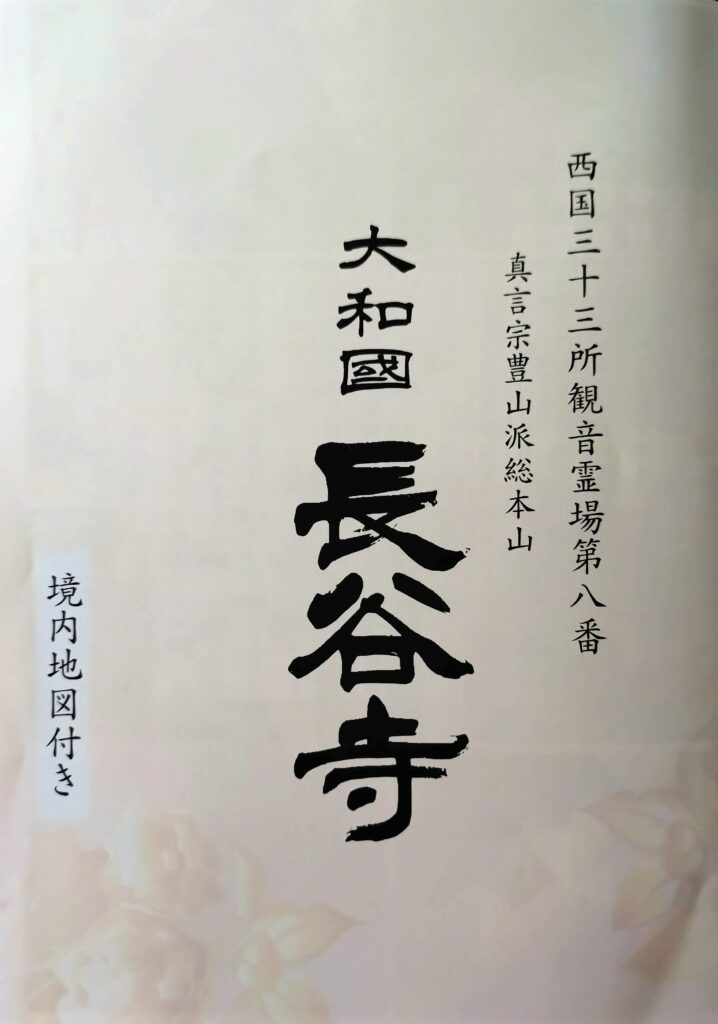 西国三十三所観音霊場第八番
真言宗豊山派総本山
大和國 長谷寺
境内地図付き